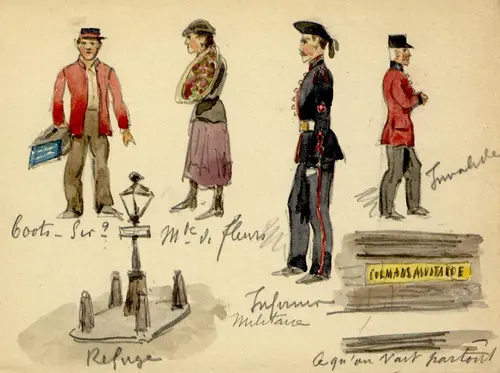 Boots - Sir ?
Mde de fleurs
Infirmier
Militaire
Invalide
COLMANS MUSTARDE
Refuge
Ce qu'on voit partout